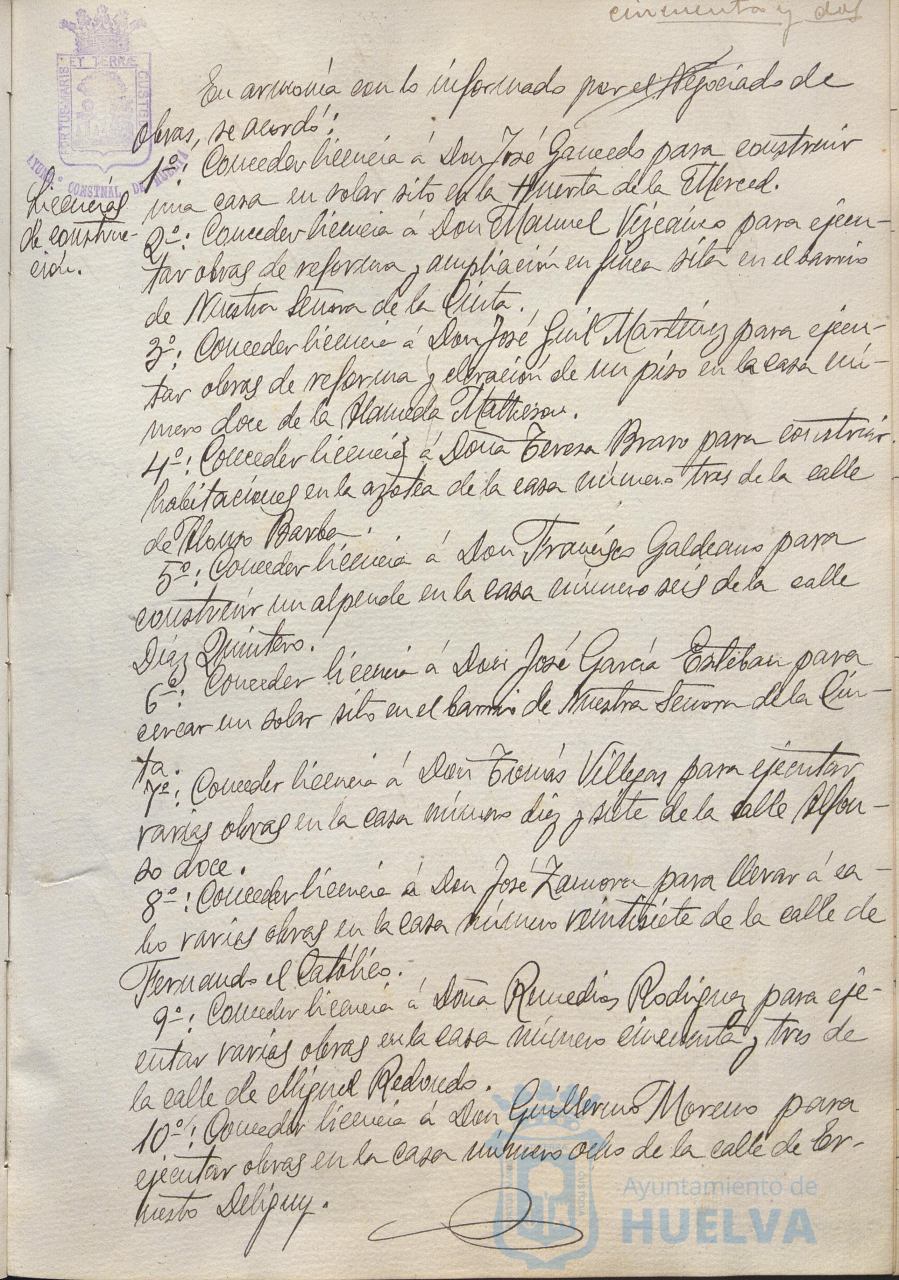 cincuenta y dos
PORTUS MARIS ET TERRÆ CUSTODIA
AYUNT.º CONSTNAL. DE HUELVA
Licencias
de construc-
ción.
En armonía con lo informado por el Negociado de
obras, se acordó:
1º: Conceder licencia á Don José Gancedo para construir
una casa en solar sito en la Huerta de la Merced.
2º: Conceder licencia á Don Manuel Vizcaino para ejecu-
tar obras de reforma y ampliación en finca sita en el barrio
de Nuestra Señora de la Cinta.
3º: Conceder licencia á Don José Guil Martínez para ejecu-
tar obras de reforma y elevación de un piso en la casa nú-
mero doce de la Alameda Mathesou.
4º: Conceder licencia á Doña Teresa Bravo para construir
habitaciones en la azotea de la casa número tres de la calle
de Alonso Barba.
5º: Conceder licencia á Don Francisco Galdeano para
construir un alpende en la casa número seis de la calle
Díaz Quintero.
6º: Conceder licencia á Don José García Esteban para
cercar un solar sito en el barrio de Nuestra Señora de la Cin-
ta.
7º: Conceder licencia á Don Tomás Villegas para ejecutar
varias obras en la casa número diez y siete de la calle Alfon-
so doce.
8º: Conceder licencia á Don José Zamora para llevar á ca-
bo varias obras en la casa número veintisiete de la calle de
Fernando el Católico.
9º: Conceder licencia á Doña Remedios Rodríguez para eje-
cutar varias obras en la casa número cincuenta y tres de
la calle de Miguel Redondo.
10º: Conceder licencia á Don Guillermo Moreno para
ejecutar obras en la casa número ocho de la calle de Er-
nesto Deligny.
Ayuntamiento de
HUELVA